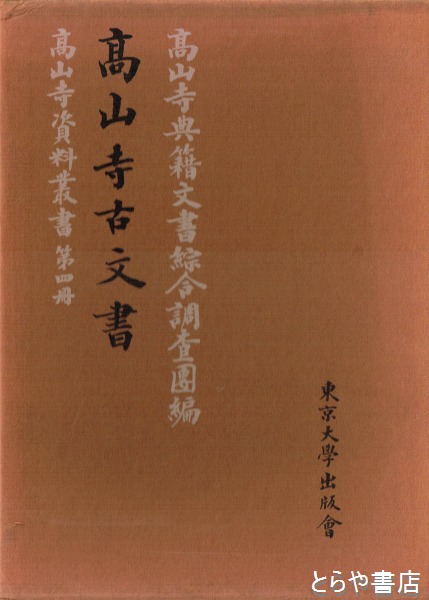 高山寺典籍文書綜合調査團編
高山寺古文書
高山寺資料叢書 第四冊
東京大學出版會
とらや書店